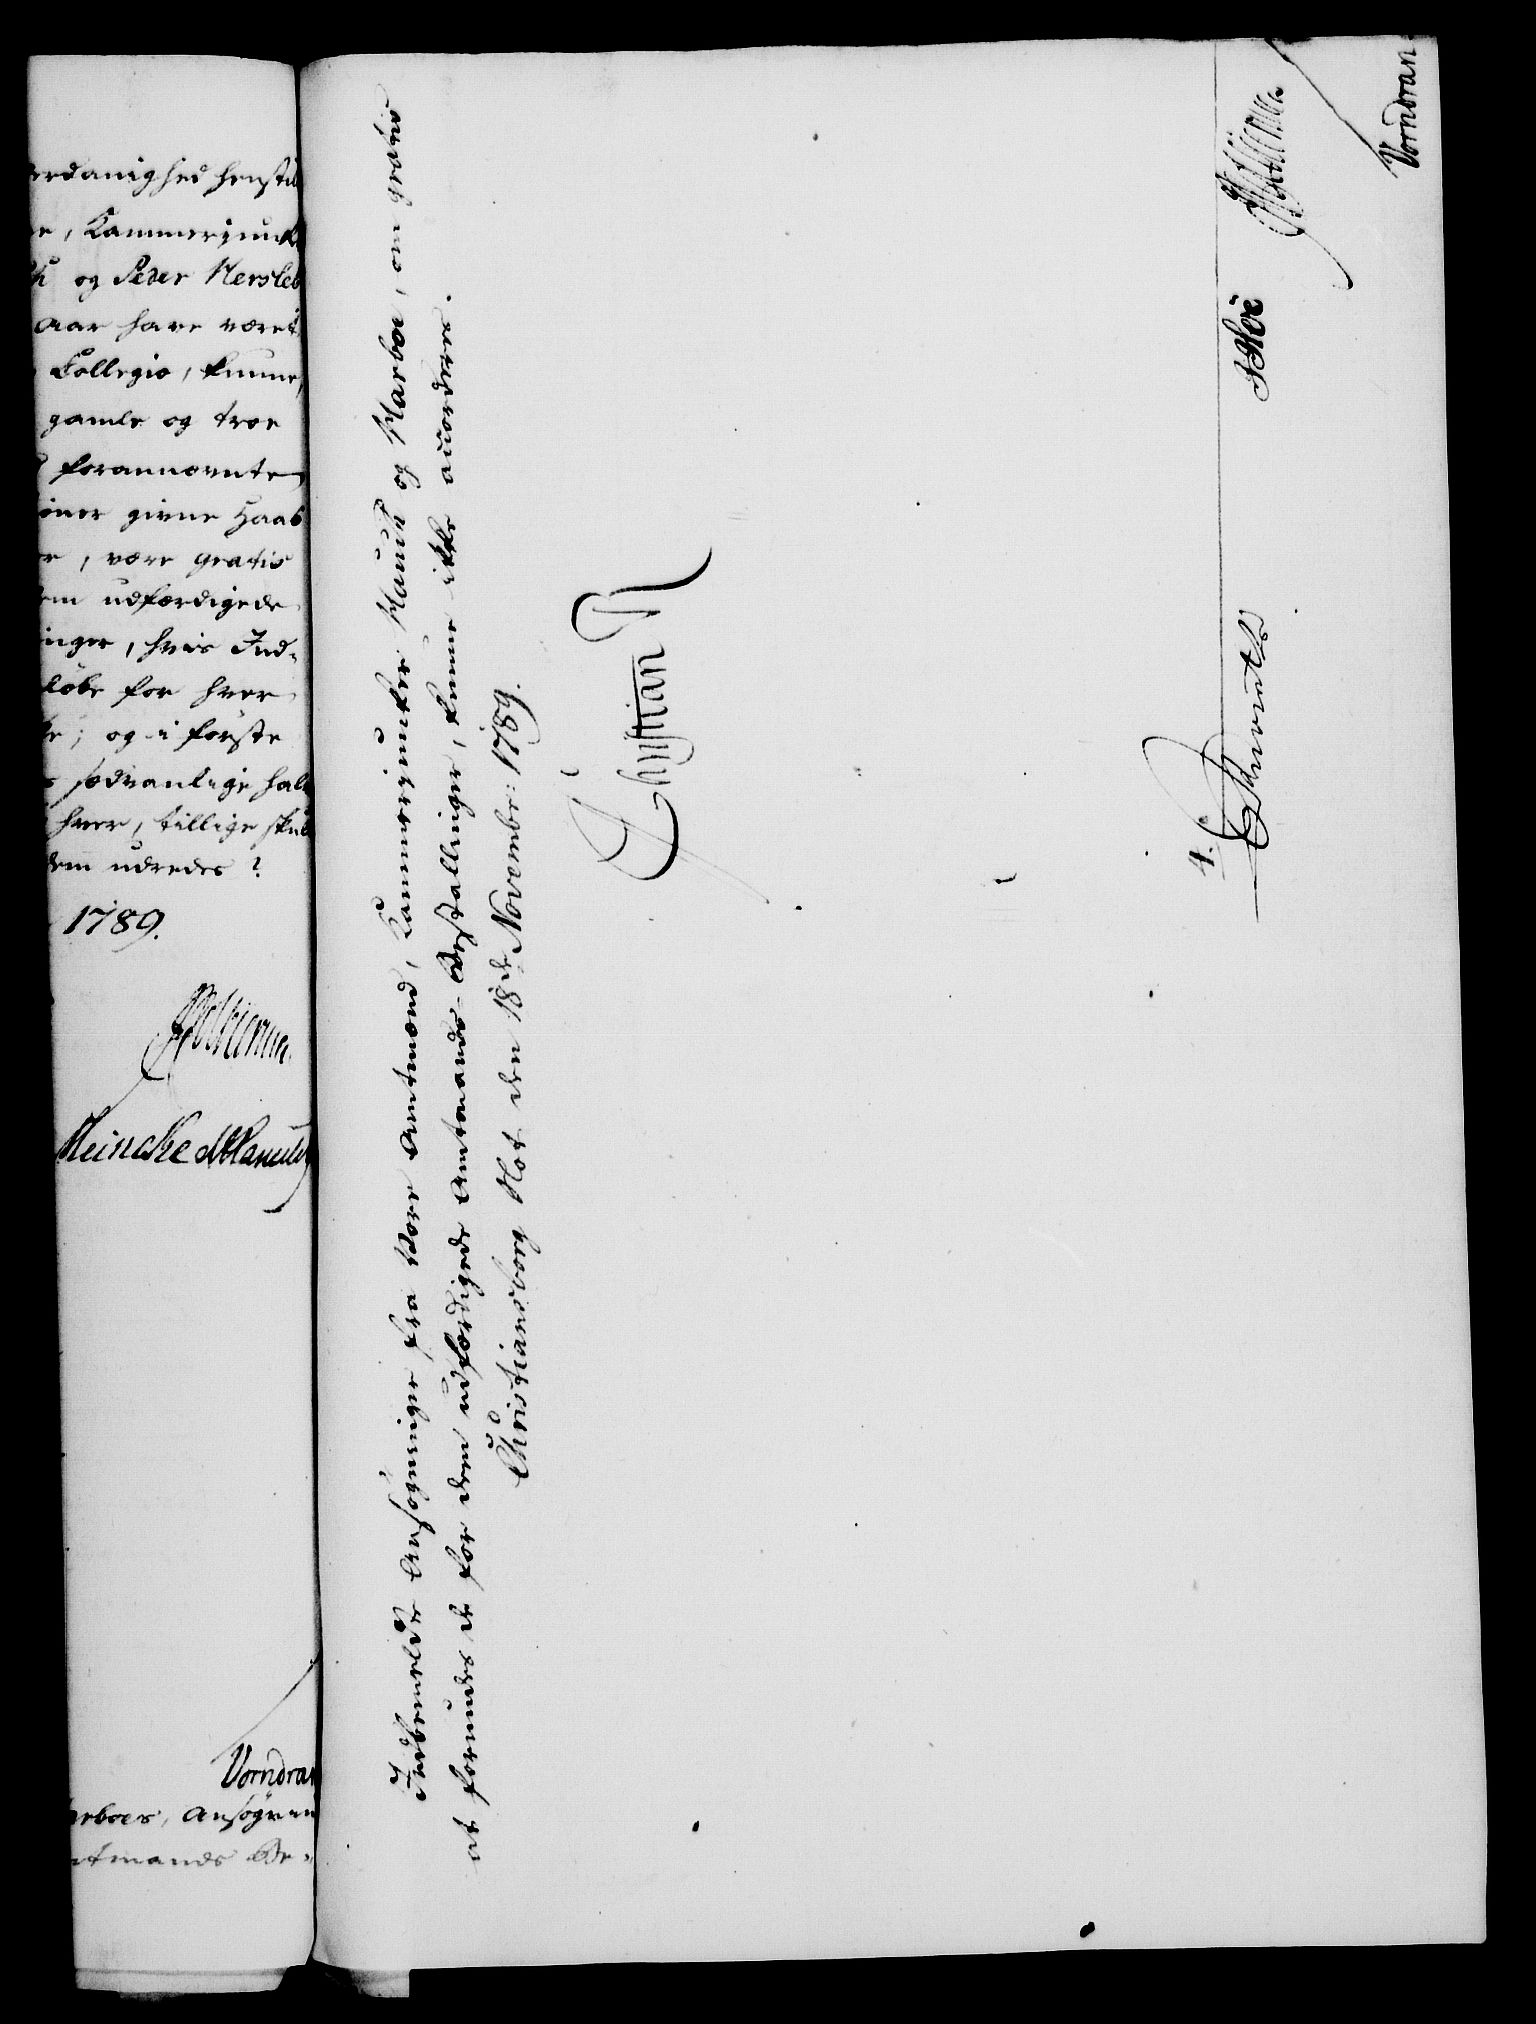 erdanighed henstil
re, Kammerjunk
og Peder Hersleb
Aar have været
Collegio, kunne,
gamle og troe
forannævnte
ioner givne Haab
er, være gratis
dem udfærdigede
inger, hvis Ind-
løbe for hver
ke; og i første
sædvanlige hal
hver, tillige skul
dem udredes?
1789.
Heincke
Vorndran
arboes, Ansøgnin
mtmands Be-
Indbemeldte Ansøgninger fra Vore Amtmænd, Kammerjunker Hauch og Harboe, om gratis
at forundes de for dem udfærdigede Amtmands-Bestallinger, kunne ikke accorderes.
Christiansborg Slot den 18de November: 1789.
Christian R
4.
Hoë
Vorndran